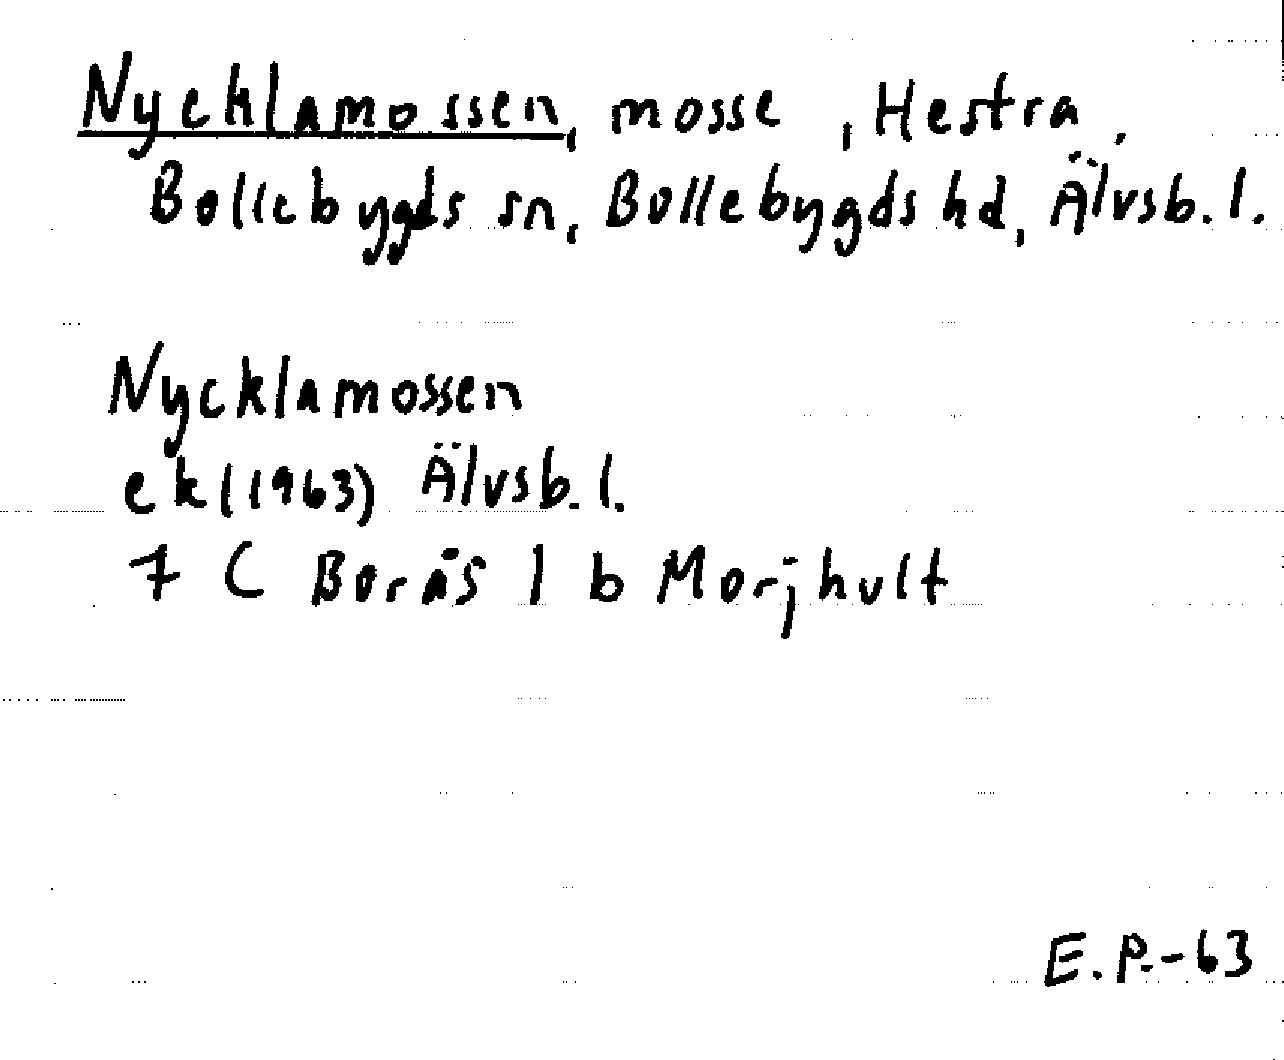 Nycklamossen, mosse, Hestra,
Bollebygds sn, Bollebygds hd, Älvsb. l.
Nycklamossen
ek (1963) Älvsb. l.
7 C Borås 1 b Morjhult
E. P. -63